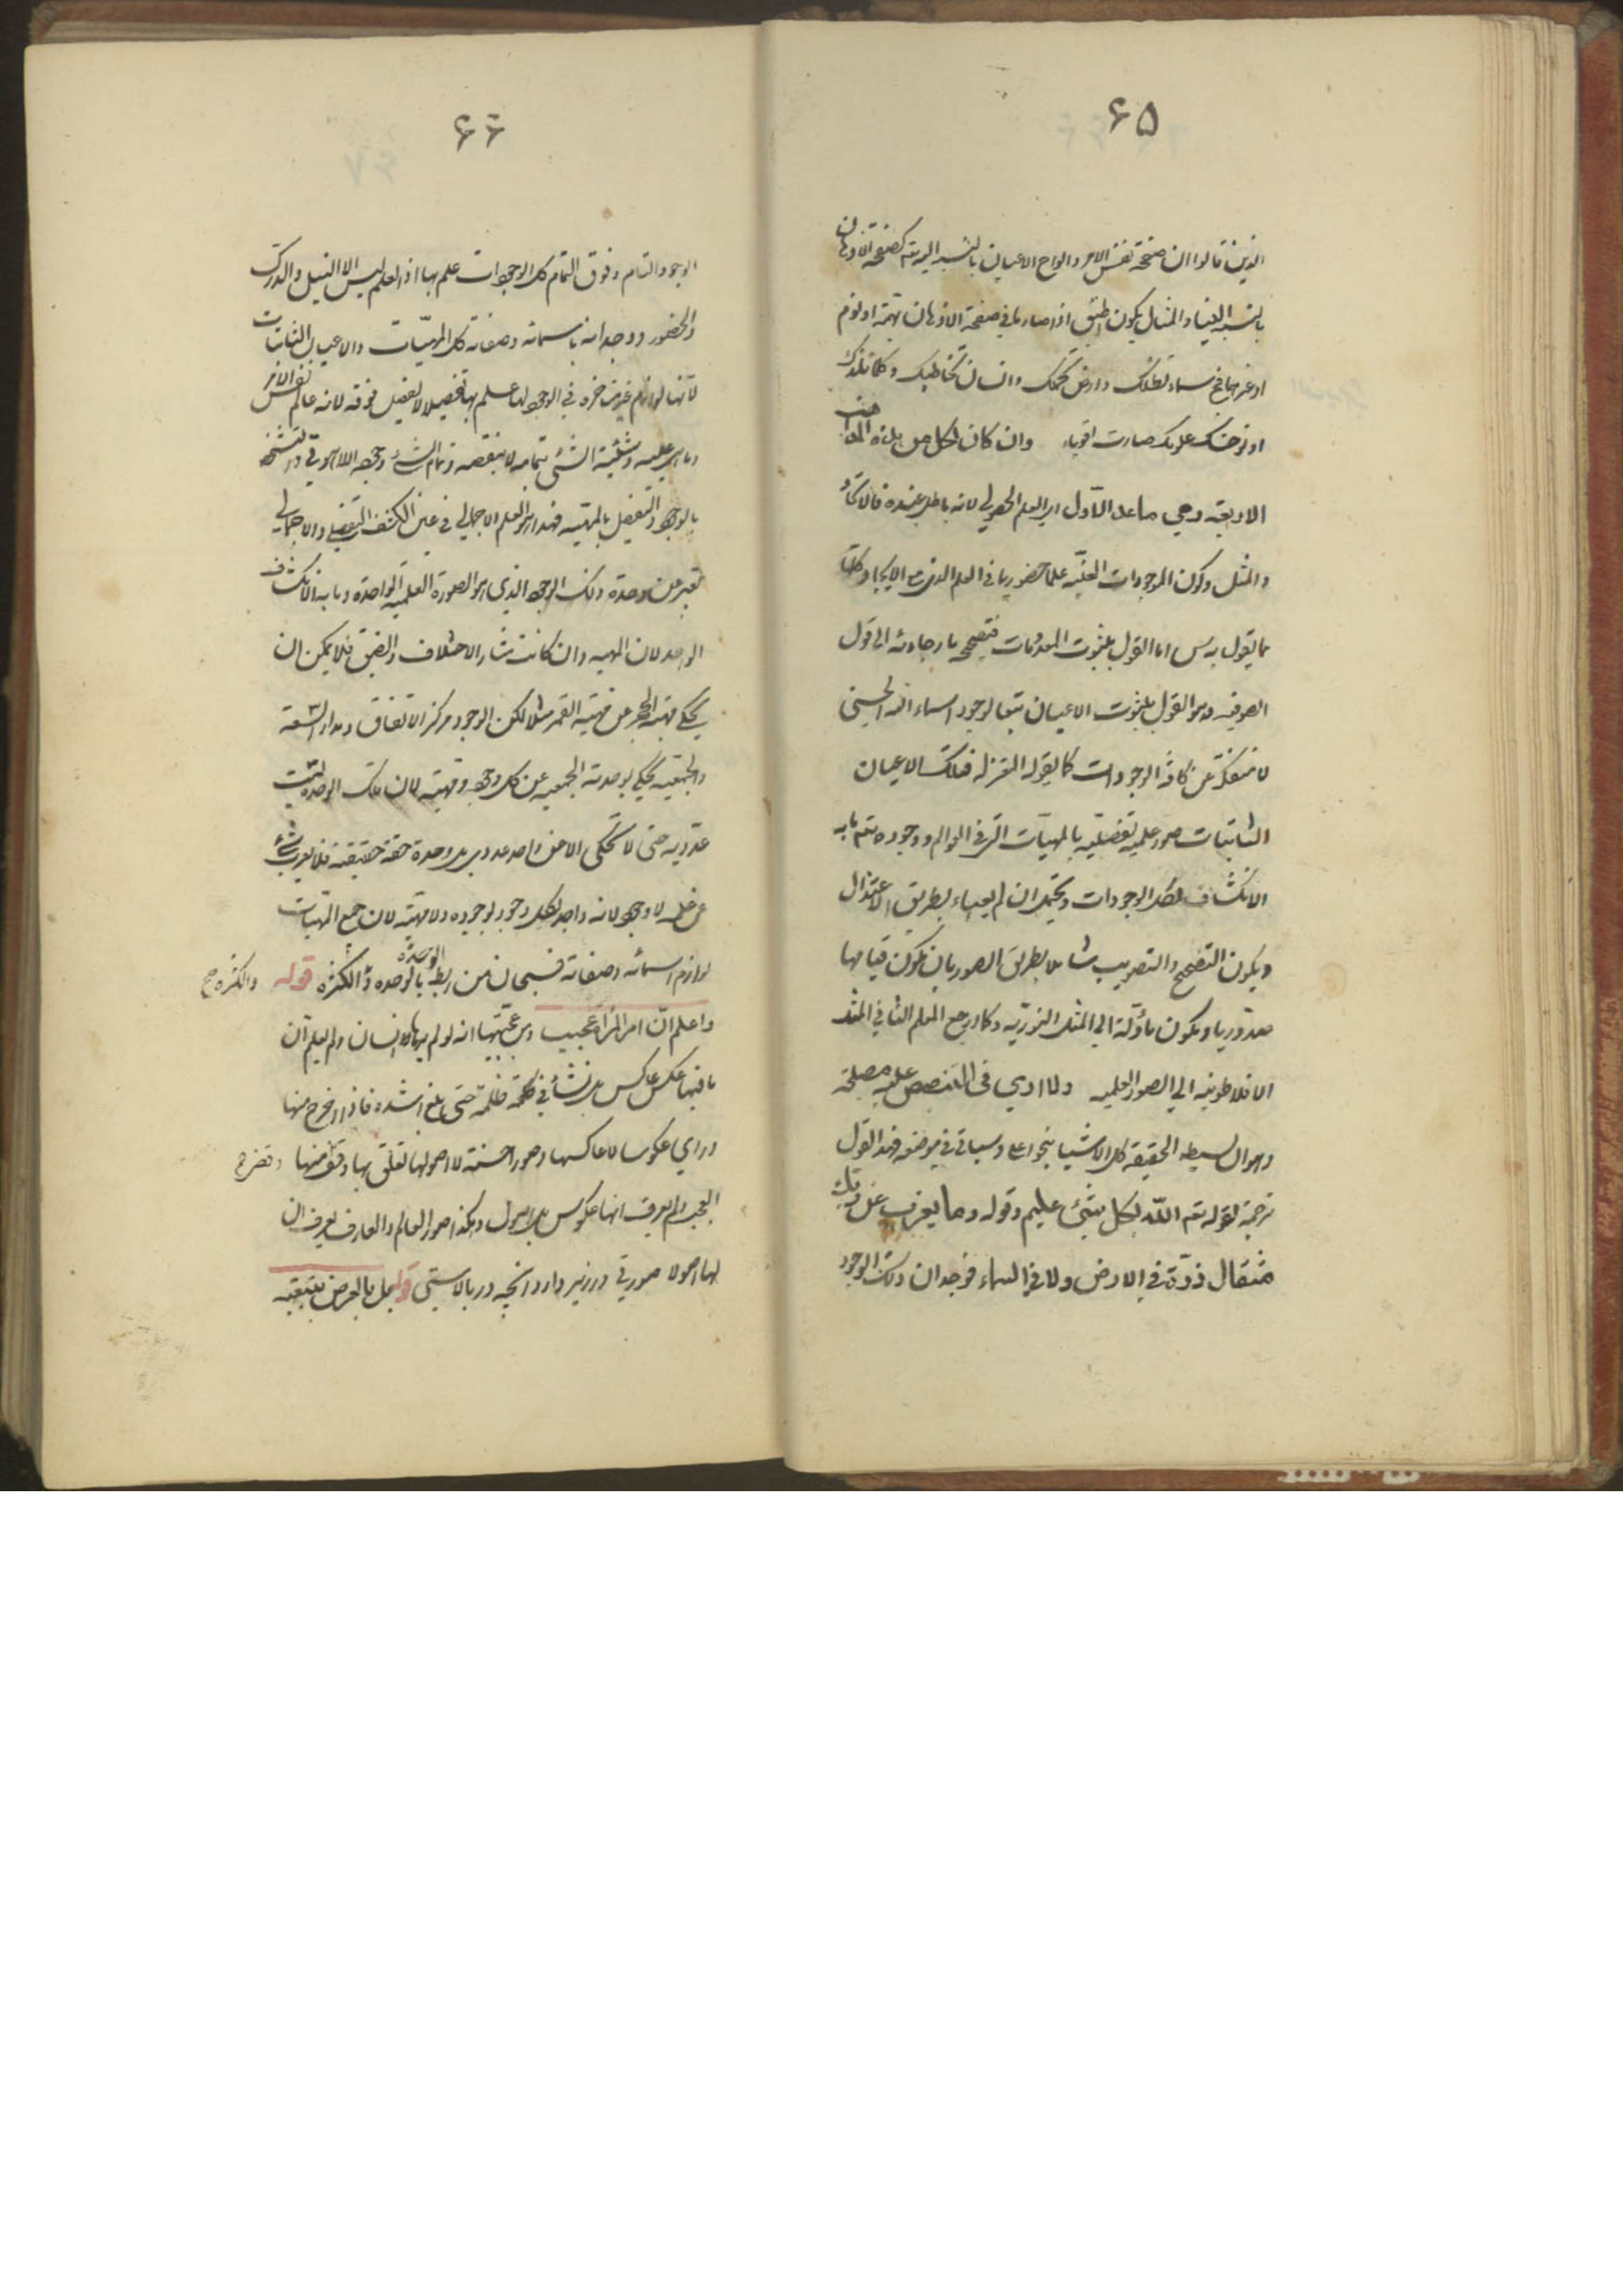 ۶۵
الذين قالوا ان صفحة نفس الامر والواح الاعيان بالنسبة اليه تع كصفحة الاذهان
بالنسبة الينا والمثال يكون اطبق اذا صار ما في صفحة الاذهان بهمة او نوم
او غيرهما سماء تظلك وارض تحملك وانسان تخاطبك وكلما تلذك
او توحشك علومك صارت اقوياء وان كان لكل من هذه المذاهب
الاربعة وهي ما عدا الاول اي العلم الحصولي لانه باطل عنده فالاتحاد
والمثل وكون الموجودات العينية علما حضوريا في العلم الذي مع الايجاد كلها
مما يقول به س اما القول بثبوت المعدومات فتصحيحه بارجاعه الى قول
الصوفيه وهو القول بثبوت الاعيان بتبع الوجود اسماء الله الحسنى
لا منفكة عن كافة الوجودات كما يقوله المعتزله فتلك الاعيان
الثابتات صور علمية تفصيليه بالمهيات التي في العوالم ووجوده تع ما به
الانكشاف لكل الوجودات ويحتمل ان لم يعباء بطريق الاعتزال
ويكون التصحيح والتصويب شاملا بطريق الصور بان يكون قيامها
صدوريا ويكون مأولة الى المثل النورية وكما ارجع المعلم الثاني المثل
الافلاطونيه الى الصور العلميه ولا ارى في التنصيص عليه مصلحة
وهو ان بسيط الحقيقة كل الاشياء بنحو اعلى وسياتي في موضعه فهذا القول
ترجمة لقوله تع الله بكل شيئ عليم وقوله وما يعزب عن ربك
مثقال ذرة في الارض ولا في السماء فوجدان ذلك الوجود
۶۶
الوجود التام وفوق التمام كل الوجودات علم بها اذ العلم ليس الا النيل والدرك
والحضور ووجدانه باسمائه وصفاته كل المهيات والاعيان الثابتات
لانها لوازم غير متاخرة في الوجود لها علم بها تفصيلا لا تفصيل فوقه لانه عالم نفس الامر
وما هي عليه وشيئية الشئ بتمامه لا بنقصه وتمام الشئ وجهه اللاهوتي والتشخص
بالوجود والتفصيل بالمهية فهذا هو العلم الاجمالي في عين الكشف التفصيلي والاجمالي
تعبير عن وحدة ذلك الوجود الذي هو الصورة العلمية الواحدة وما به الانكشاف
الواحد لان المهيه وان كانت مثار الاختلاف والضيق فلا يمكن ان
يحكي مهية الحجر عن مهية القمر مثلا لكن الوجود مركز الاتفاق ومدار السعة
والجمعيه يحكي بوحدته الجمعيه عن كل وجود ومهية لان تلك الوحدة ليست
عددية حتى لا تحكى الا عن واحد عددي بل وحدة حقة حقيقية فلا يعزب شئ
عن علمه لا وجود لانه واجد لكل وجود بوجوده ولا مهية لان جميع المهيات
لوازم اسمائه وصفاته فسبحان من ربط الوحدة بالوحده والكثره قوله والكثرة ح
واعلم ان امر المرآة عجيب ومن عجيبها انه لو لم يرها الانسان ولم يعلم ان
ما فيها عكس عاكس بل نشأ في ظلمة حتى بلغ اشده فاذا اخرج منها
وراى عكوسا لا عاكسها وصورا حسنة لا اصولها تعلق بها وقضى منها وقضى ح
العجب ولم يعرف انها عكوس بل اصول وهكذا صور العالم والعارف يعرف ان
لها اصولا صورتي در زير دارد آنچه در بالاستي قوله بل بالعرض بتبعيه